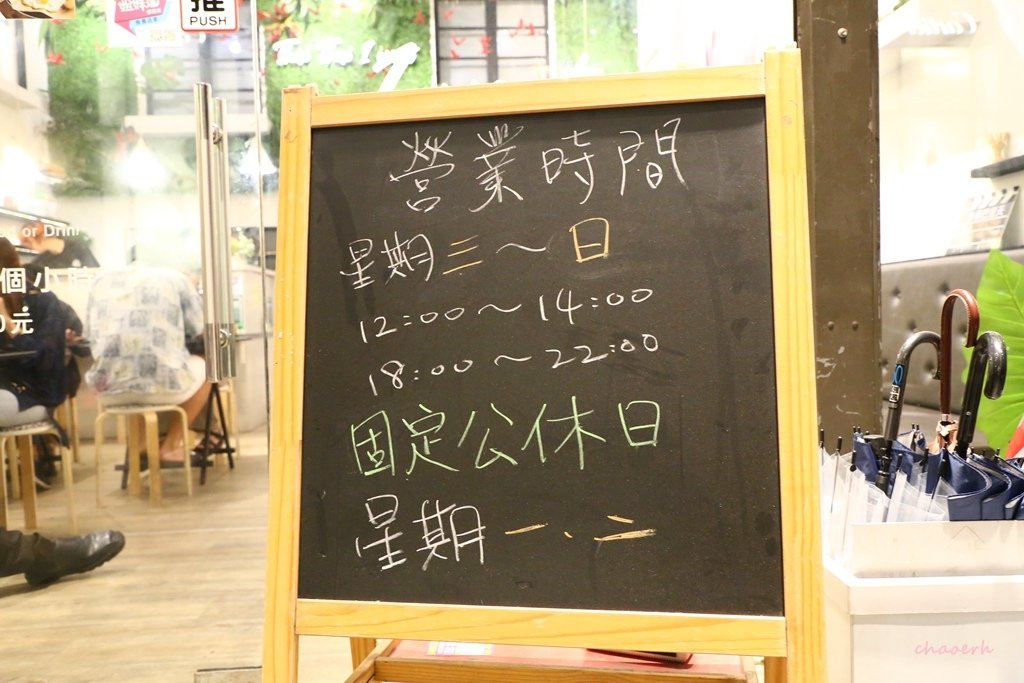 推
PUSH
營業時間
星期三～日
12:00～14:00
18:00～22:00
固定公休日
星期一、二
or Drin
個小時
0元
chaoerh